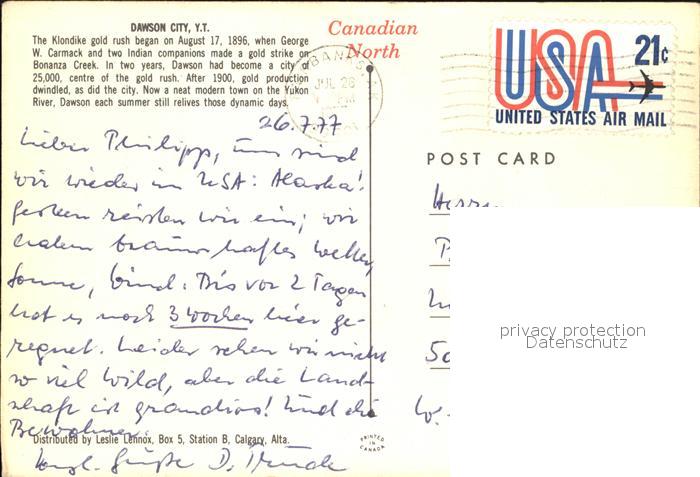 DAWSON CITY, Y.T.
The Klondike gold rush began on August 17, 1896, when George
W. Carmack and two Indian companions made a gold strike on
Bonanza Creek. In two years, Dawson had become a city of
25,000, centre of the gold rush. After 1900, gold production
dwindled, as did the city. Now a neat modern town on the Yukon
River, Dawson each summer still relives those dynamic days.
Canadian
North
JUL 28
PM
USA 21c
UNITED STATES AIR MAIL
POST CARD
26.7.77
Lieber Philipp, nun sind
wir wieder in USA: Alaska!
Gestern reisten wir ein; wir
haben traumhaftes Wetter,
Sonne, Wind. Bis vor 2 Tagen
hat es noch 3 Wochen hier ge-
regnet. Leider sehen wir nicht
so viel Wild, aber die Land-
schaft ist grandios! Und die
Bewohner.
Herzl. Grüße D.
Herrn
privacy protection
Datenschutz
Distributed by Leslie Lennox, Box 5, Station B, Calgary, Alta.
PRINTED
IN
CANADA